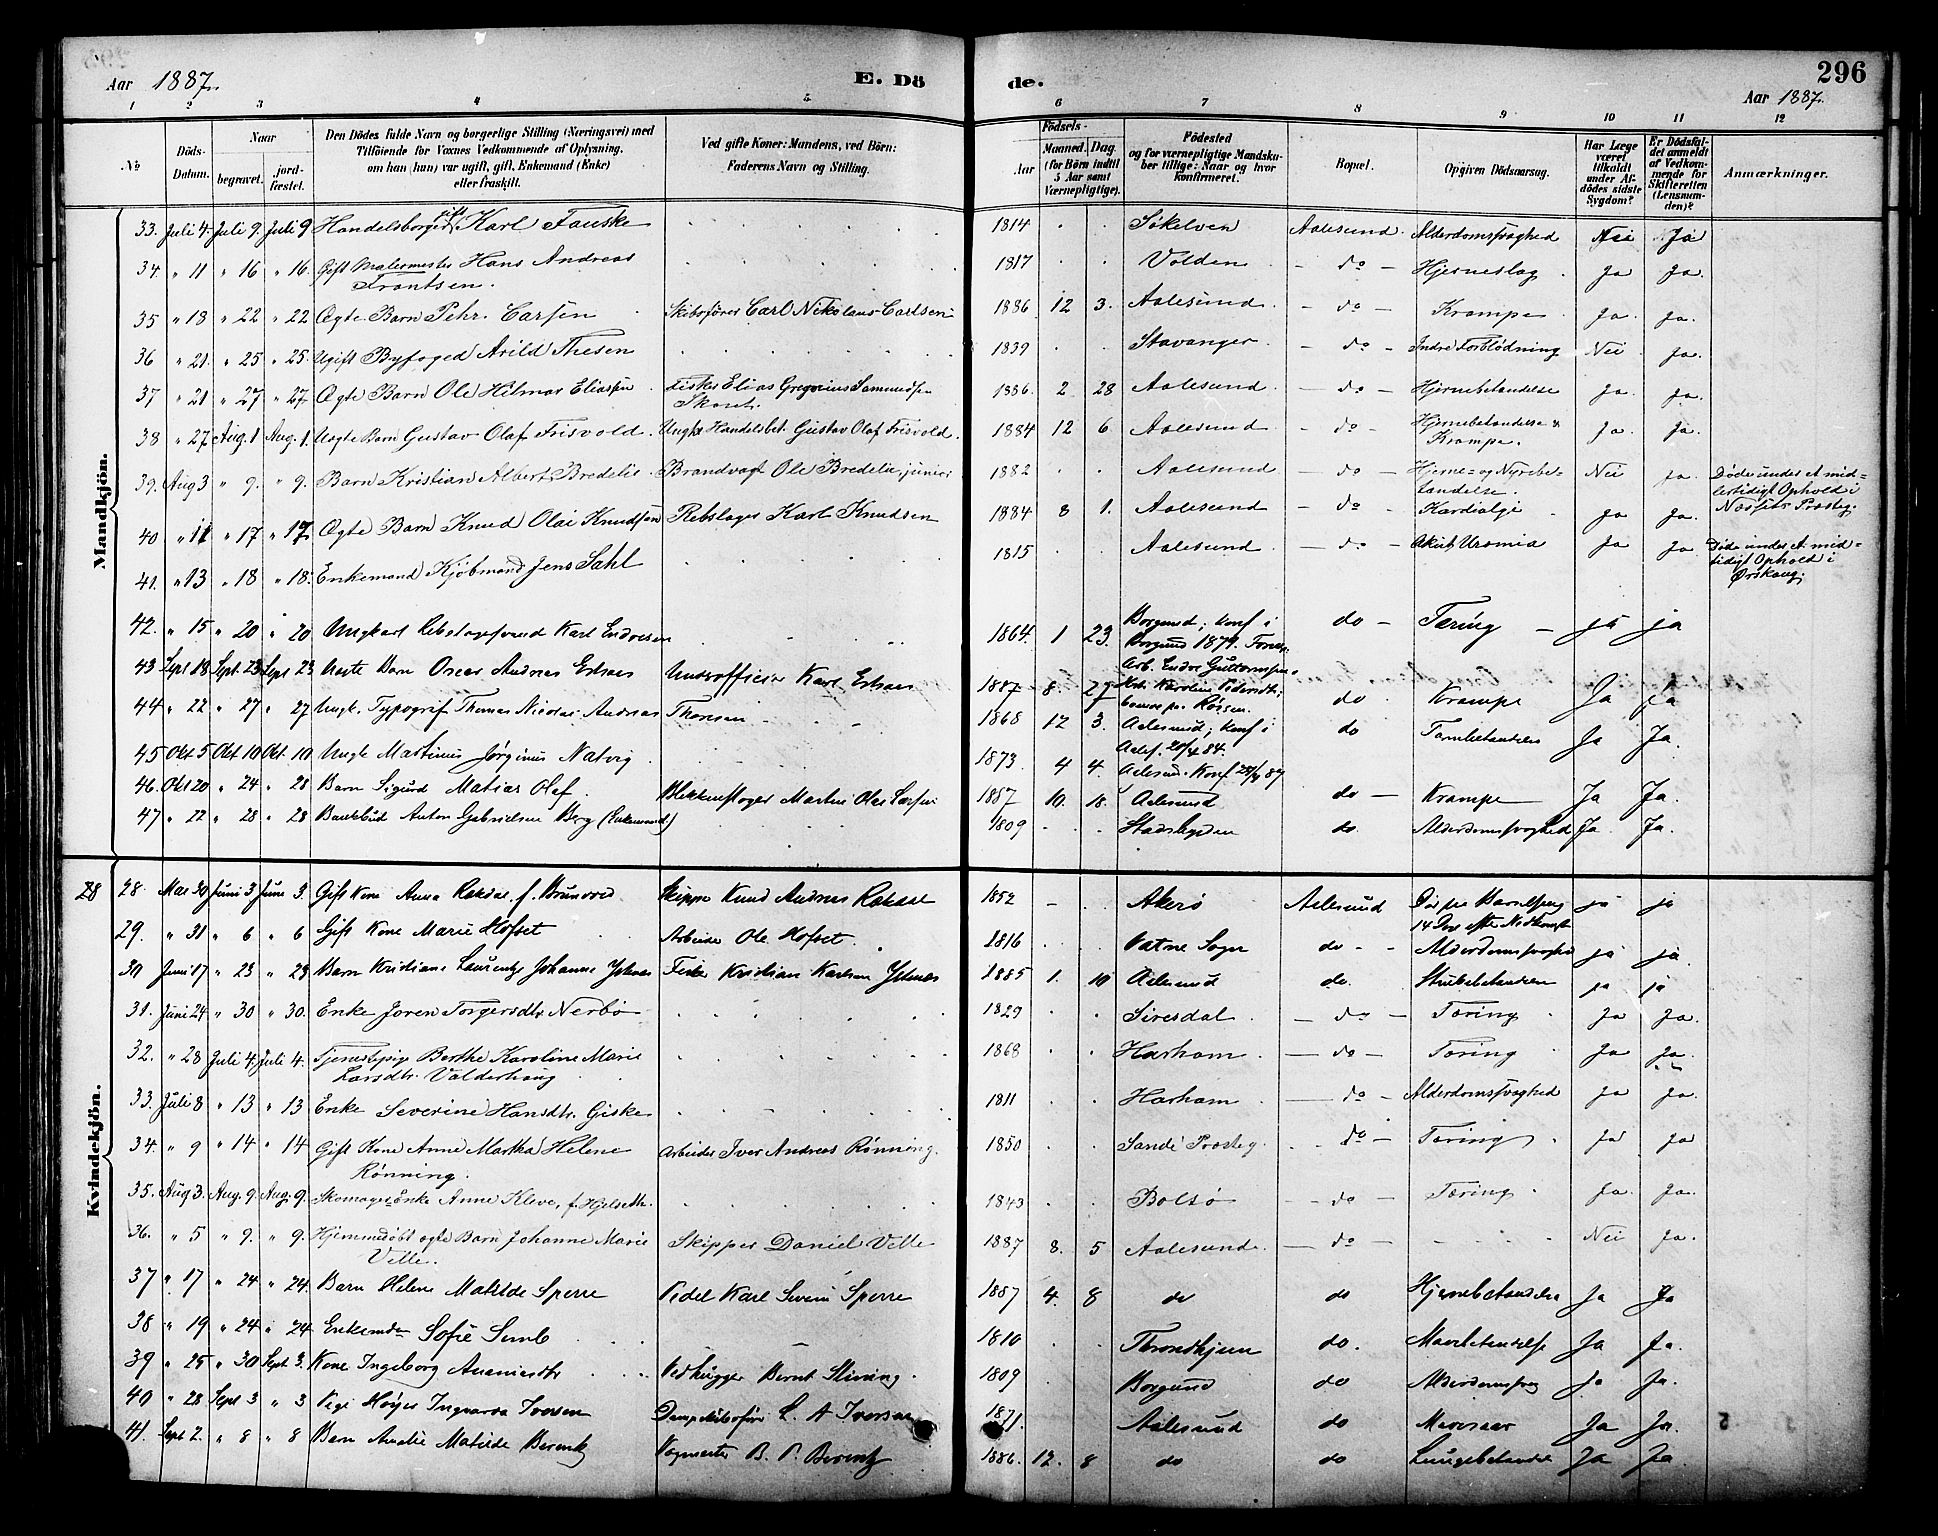 296
Aar 1887.
E. Dö
de.
Aar 1887.
1 2 3 4 5 6 7 8 9 10 11 12
No
Döds-Datum.
Naar
begravet.
jordfæstet.
Den Dödes fulde Navn og borgerlige Stilling (Næringsvei) med
Tilföiende for Voxnes Vedkommende af Oplysning,
om han (hun) var ugift, gift, Enkemand (Enke)
eller fraskilt.
Ved gifte Koner: Mandens, ved Börn:
Faderens Navn og Stilling.
Födsels-
Aar
Maaned. Dag.
(for Börn indtil
5 Aar samt
Værnepligtige).
Födested
og for værnepligtige Mandsku-
ber tillige: Naar og hvor
konfirmeret.
Bopæl.
Opgiven Dödsaarsag.
Har Læge
været
tilkaldt
under Af-
dödes sidste
Sygdom?
Er Dödsfal-
det anmeldt
af Vedkom-
mende for
Skifteretten
(Lensman-
den)?
Anmærkninger.
Mandkjön.
33. Juli 4. Juli 9. Juli 9 Handelsborger gift Karl Fauske 1814 Søkelven Aalesund. Alderdomssvaghed Nei Ja
34. " 11 " 16 " 16. Gift Malermester Hans Andreas
Frantsen. 1817 Volden - do - Hjerneslag. Ja Ja.
35 " 18 " 22 " 22 Ægte Barn Pehr Carlsen Skibsfører Carl Nikolaus Carlsen 1886 12 3. Aalesund - do - Krampe Ja. ja.
36 " 21. " 25 " 25. Ugift Byfoged Arild Thesen 1839 Stavanger - do - Indre Forblødning Nei ja.
37 " 21 " 27 " 27. Ægte Barn Ole Hilmar Eliassen Fisker Elias Gregorius Samundsen
1886. 2 28 Aalesund - do - Hjernebetændelse Ja. ja.
38 " 27 Aug. 1 Aug. 1. Uægte Barn Gustav Olaf Frisvold. Ungk. Handelsbet. Gustav Olaf Frisvold. 1884 12 6 Aalesund - do - Hjernebetændelse &
Krampe. Ja. Ja.
39. Aug 3 " 9. " 9. Barn Kristian Albert Bredelie Brandvagt Ole Bredelie junior 1882 Aalesund - do - Hjerne- og Nyrebe-
tændelse. Nei Ja. Døde under et mid-
lertidigt Ophold i
Næssets Præsteg.
40 " 11 " 17 " 17 Ægte Barn Knud Olai Knudsen Rebslager Karl Knudsen 1884 8 1. Aalesund - do - Kardialgi Ja Ja.
41. " 13 " 18 " 18. Enkemand Kjøbmand Jens Sahl 1815 Aalesund - do - Akut Uræmia Ja Ja Døde under et mid-
tidigt Ophold i
Ørskoug.
42. " 15 " 20 " 20 Ungkarl Rebslagersvend Karl Endresen 1864. 1 23. Borgund; konf i
Borgund 1879. Foræl.
Arb. Endre Guttormsen
do - Tæring - ja ja
43 Sept 18 Sept. 23 Sept 23 Ægte Barn Oscar Andreas Underofficier Karl 1887 8. 27 do Krampe Ja Ja
44 " 22 " 27 " 27 Ungk. Typograf Thomas Nicolai Andreas Thomsen 1868 12 3. Aalesund; konf i
Aales. 20/4 84. do Tarmbetændelse Ja Ja.
45 Okt 5 Okt 10 Okt 10 Ungk Martinus Jørginus Natvig 1873 4 4. Aalesund. Konf 24/4 87
46. Okt 20 " 24 " 28 Barn Sigurd Matias Olaf. Blikkenslager Martin Olai Larsen 1887 10. 18. Aalesund do - Krampe Ja Ja.
47 " 22 " 28 " 28 Bankbud Anton Gabrielsen Berg (Enkemand) 1809 Stadsbygden do Alderdomssvaghed Ja. Ja.
Kvindekjön.
28 28. Mai 30 Juni 3 Juni 3. Gift Kone Anna Rakdal f. Brunvoll Skipper Knud Andreas Rakdal 1852 Akerø Aalesund Død paa Barselseng
14 Dage efter Nedkomst ja ja
29. " 31 " 6 " 6 Gift Kone Marie Hofset Arbeider Ole Hofset. 1816 Vatne Sogn do - Alderdomssvaghed ja ja
30 Juni 17 " 23 " 23 Barn Kristiane Laurentze Johanne Fisker Kristian Karlsen 1885 1. 10 Aalesund do. Strubebetændelse ja ja
31. Juni 24 " 30 " 30. Enke Joren Torgersdtr. Nerbø 1829 Siresdal - do - Tæring Ja Ja.
32. " 28 Juli 4. Juli 4. Tjenestepig Berthe Karoline Marie
Larsdtr. Valderhaug 1868 Harham - do - Tæring Ja Ja.
33. Juli 8 " 13 " 13 Enke Severine Hansdtr. Giske 1811 Harham - do - Alderdomssvaghed Ja Ja.
34. " 9 " 14 " 14 Gift Kone Anne Martha Helene
Rønning. Arbeider Iver Andreas Rønning. 1850 Sande Præsteg. - do - Tæring Ja Ja
35. Aug 3. Aug. 9. Aug. 9. Skomager Enke Anne Kleve, f. Hjelseth. 1843 Bolsø - do - Tæring Ja. Ja.
36. " 5 " 9. " 9. Hjemmedøbt ægte Barn Johanne Marie
Velle. Skipper Daniel Velle 1887 8. 5 Aalesund - do - Nei Ja.
37 " 17 " 24 " 24. Barn Helene Matilde Sperre Pedel Karl Severin Sperre 1887 4. 8 do do Hjernebetændelse Ja Ja
38 " 19 " 24 " 24 Enkemde Sofie Semb 1810 Throndhjem do. Mavebetændelse Ja Ja.
39 " 25 " 30 Sept 3. Kone Ingeborg Ananiasdtr Vedhugger Bernt Slining. 1809 Borgund do Alderdomssvag Ja Ja.
40 " 28 Sept 3 " 3 Pige Ingvarda Iversen Dampskibsfører L. A Iversen 1871. Aalesund do Mavesaar Ja Ja.
41. Sept 2. " 8 " 8 Barn Amalie Matilde Berentz Vagmester B. P. Berentz 1886. 12. 8 do do Lungebetændelse Ja Ja.